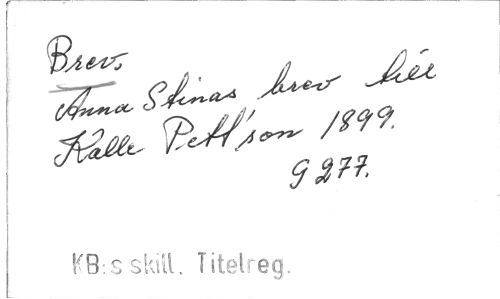 Brev.
Anna Stinas brev till
Kalle Pett'son 1899.
G 277.
KB:s skill. Titelreg.